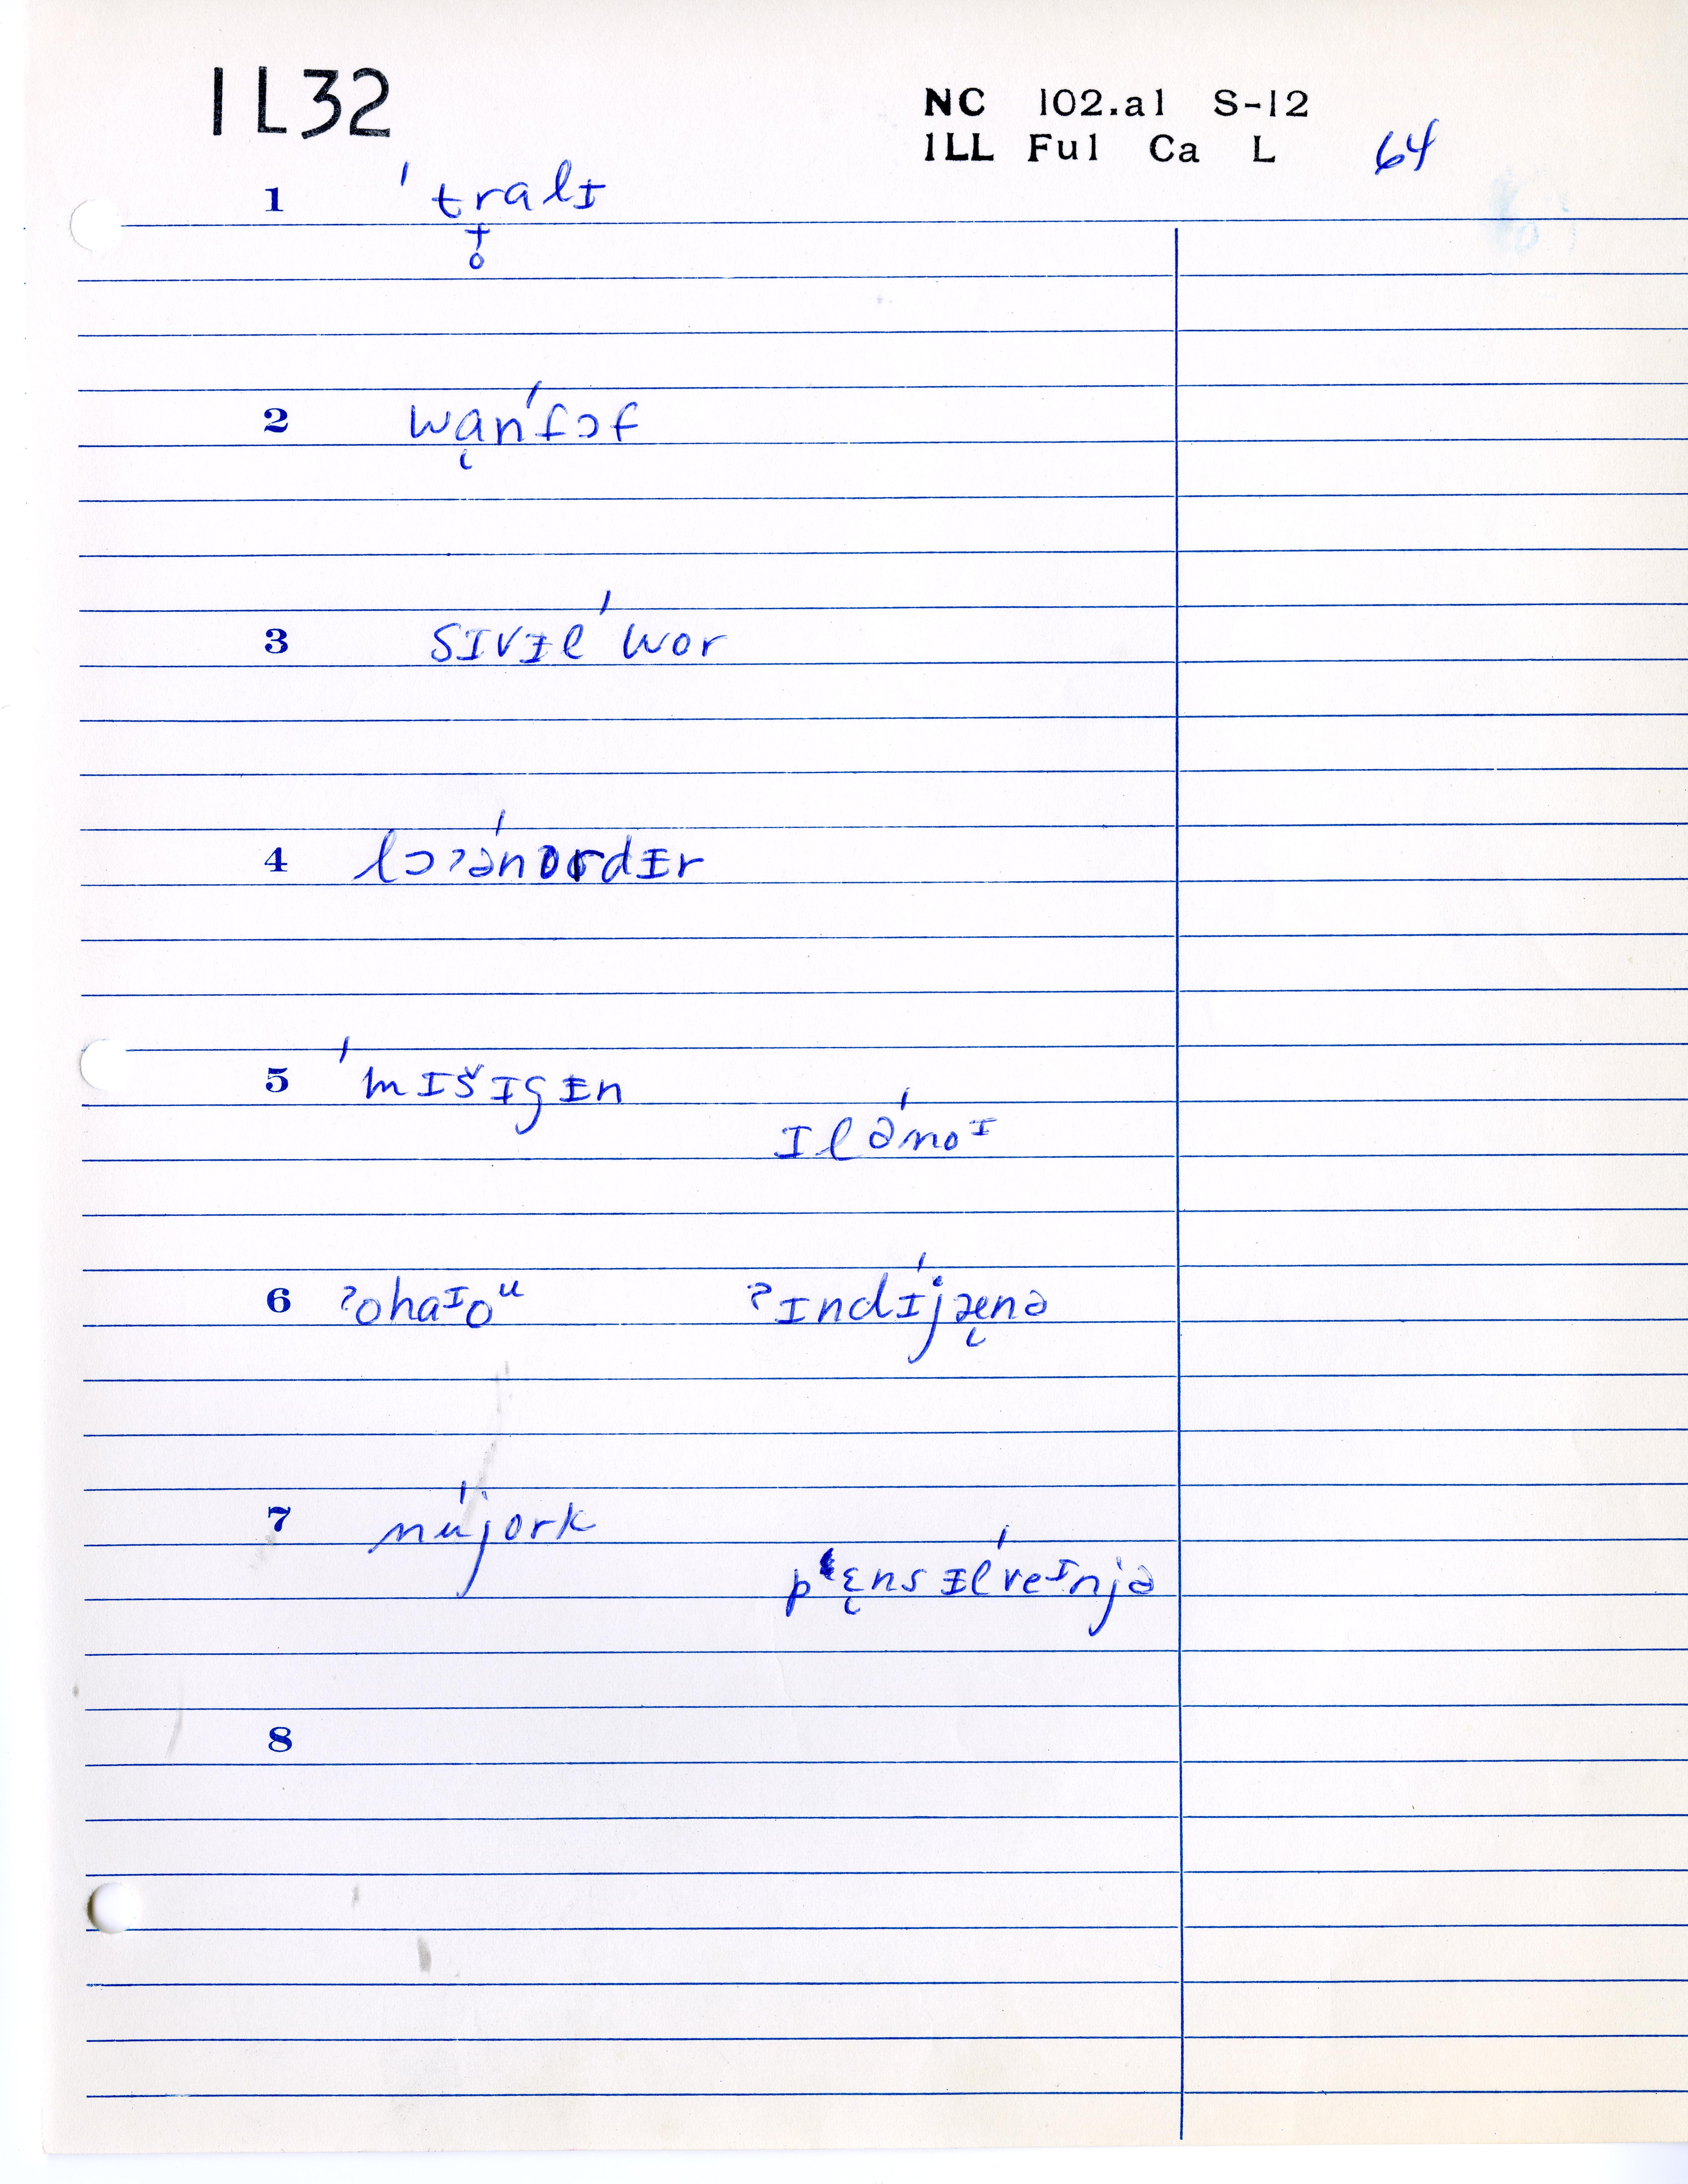 IL32
NC 102.a1 S-12
ILL Ful Ca L 64
1 ˈtr̥̟alɪ
2 wɑ̨nˈfɔf
3 sɪvᵻlˈwor
4 lɔʔənˈɒrdᵻr
5 ˈmɪšɪgᵻn
ɪləˈnoᶦ
6 ʔohaᶦoᵘ ʔɪndɪˈjæ̨nə
7 nuˈjork
pʻɛ̨nsᵻlˈveᶦnjə
8